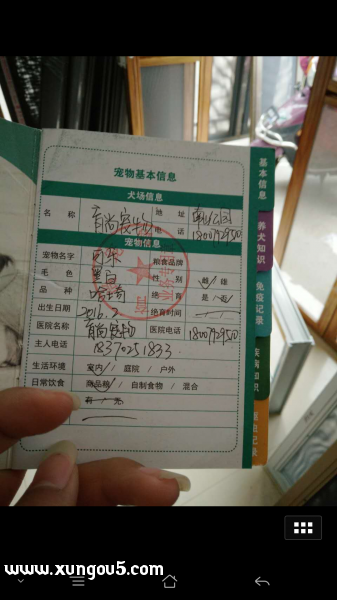 宠物基本信息
犬场信息
名 称 育尚宠物 地 址
电 话
宠物信息
宠物名字 粮食品牌
毛 色 黑白 性 别 雌 / 雄
品 种 哈士奇 绝 育 是 / 否
出生日期 2016.2 绝育时间
医院名称 育尚宠物 医院电话
主人电话 18370251833
生活环境 室内 / 庭院 / 户外
日常饮食 商品粮 / 自制食物 / 混合
有 / 无
基本信息
养犬知识
免疫记录
疾病知识
记录
www.xungou5.com